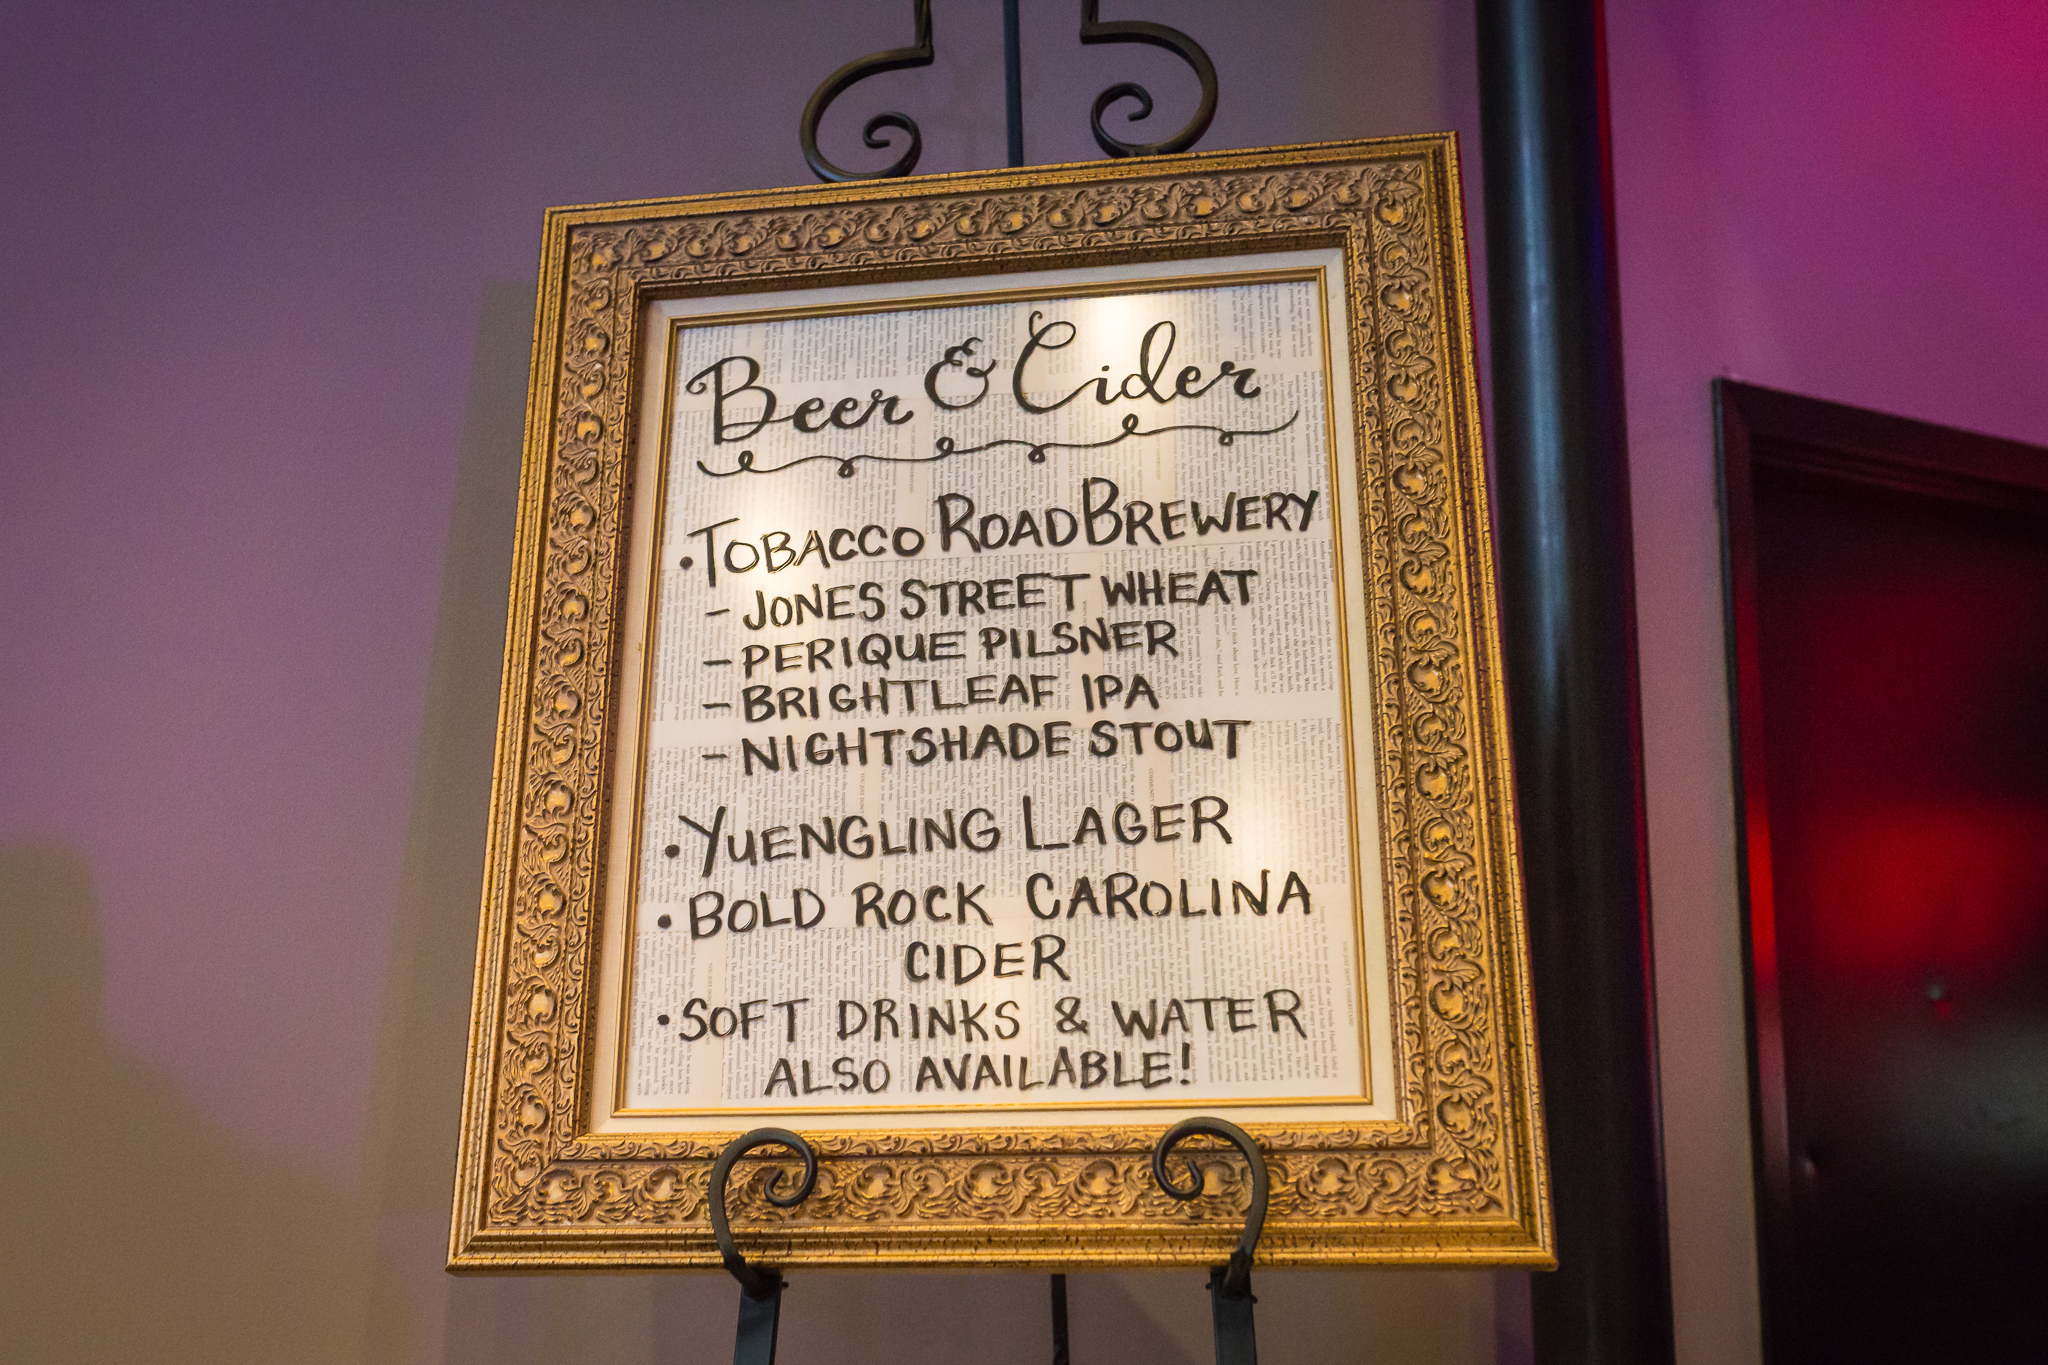 Beer & Cider
• TOBACCO ROAD BREWERY
- JONES STREET WHEAT
- PERIQUE PILSNER
- BRIGHTLEAF IPA
- NIGHTSHADE STOUT
• YUENGLING LAGER
• BOLD ROCK CAROLINA
CIDER
• SOFT DRINKS & WATER
ALSO AVAILABLE!